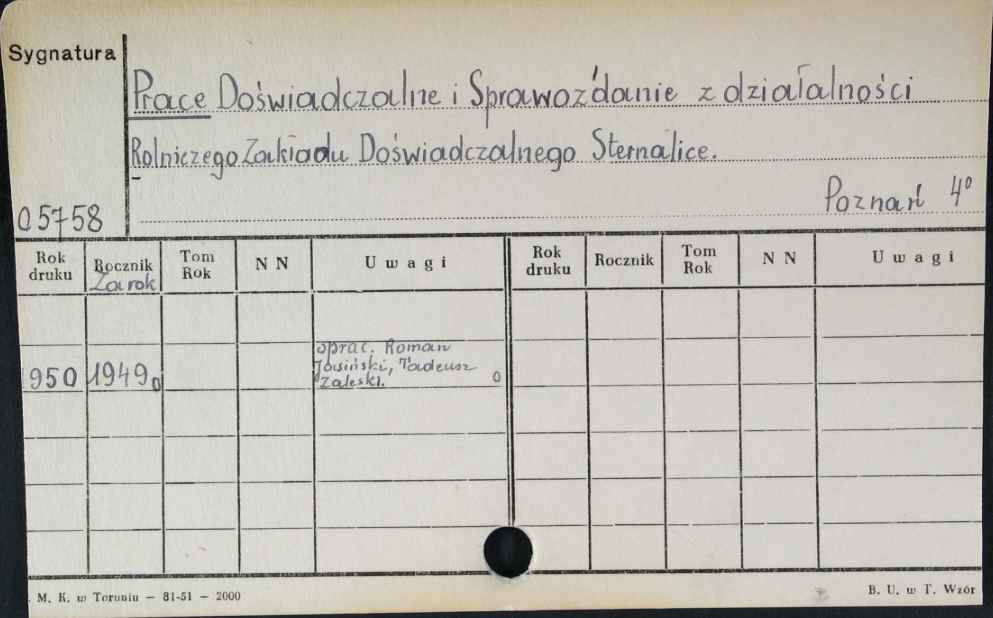 Sygnatura
Prace Doświadczalne i Sprawoźdanie z działalności
Rolniczego Zakładu Doświadczalnego Sternalice.
Poznań 4º
05758
Rok druku Rocznik Tom Rok N N Uwagi Rok druku Rocznik Tom Rok N N Uwagi
Za rok
oprac. Roman
Jasiński, Tadeusz
1950 1949 0 Zaleski. 0
M. K. w Toruniu — 81-51 — 2000 B. U. w T. Wzór